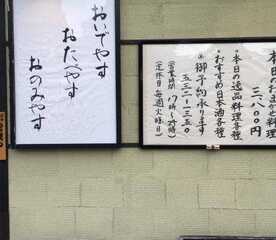 おいでやす
おたべやす
おのみやす
本日のおまかせ料理
三、八〇〇円
・本日の逸品料理各種
・おすすめ日本酒各種
御予約承ります
五三二-一三五〇
(営業時間 17時~21時)
(定休日 毎週火曜日)